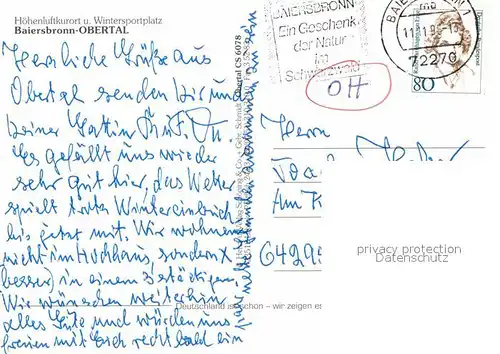 Höhenluftkurort u. Wintersportplatz
Baiersbronn-OBERTAL
Herzliche Grüße aus
Obertal senden Dir und
Deiner Gattin
Es gefällt uns wieder
sehr gut hier, das Wetter
spielt trotz Wintereinbruch
bis jetzt mit. Wir wohnen
nicht im Hochhaus, sondern
(besser) in einem 2stöckigen.
Wir wünschen weiterhin
alles Gute und würden uns
freuen mit Euch recht bald ein
BAIERSBRONN
Ein Geschenk
der Natur
im
Schwarzwald
BAIERSBRONN 1
72270
80
OH
Herrn
Am
6429
privacy protection
Datenschutz
Deutschland ist schön – wir zeigen es
Obertal CS 6078